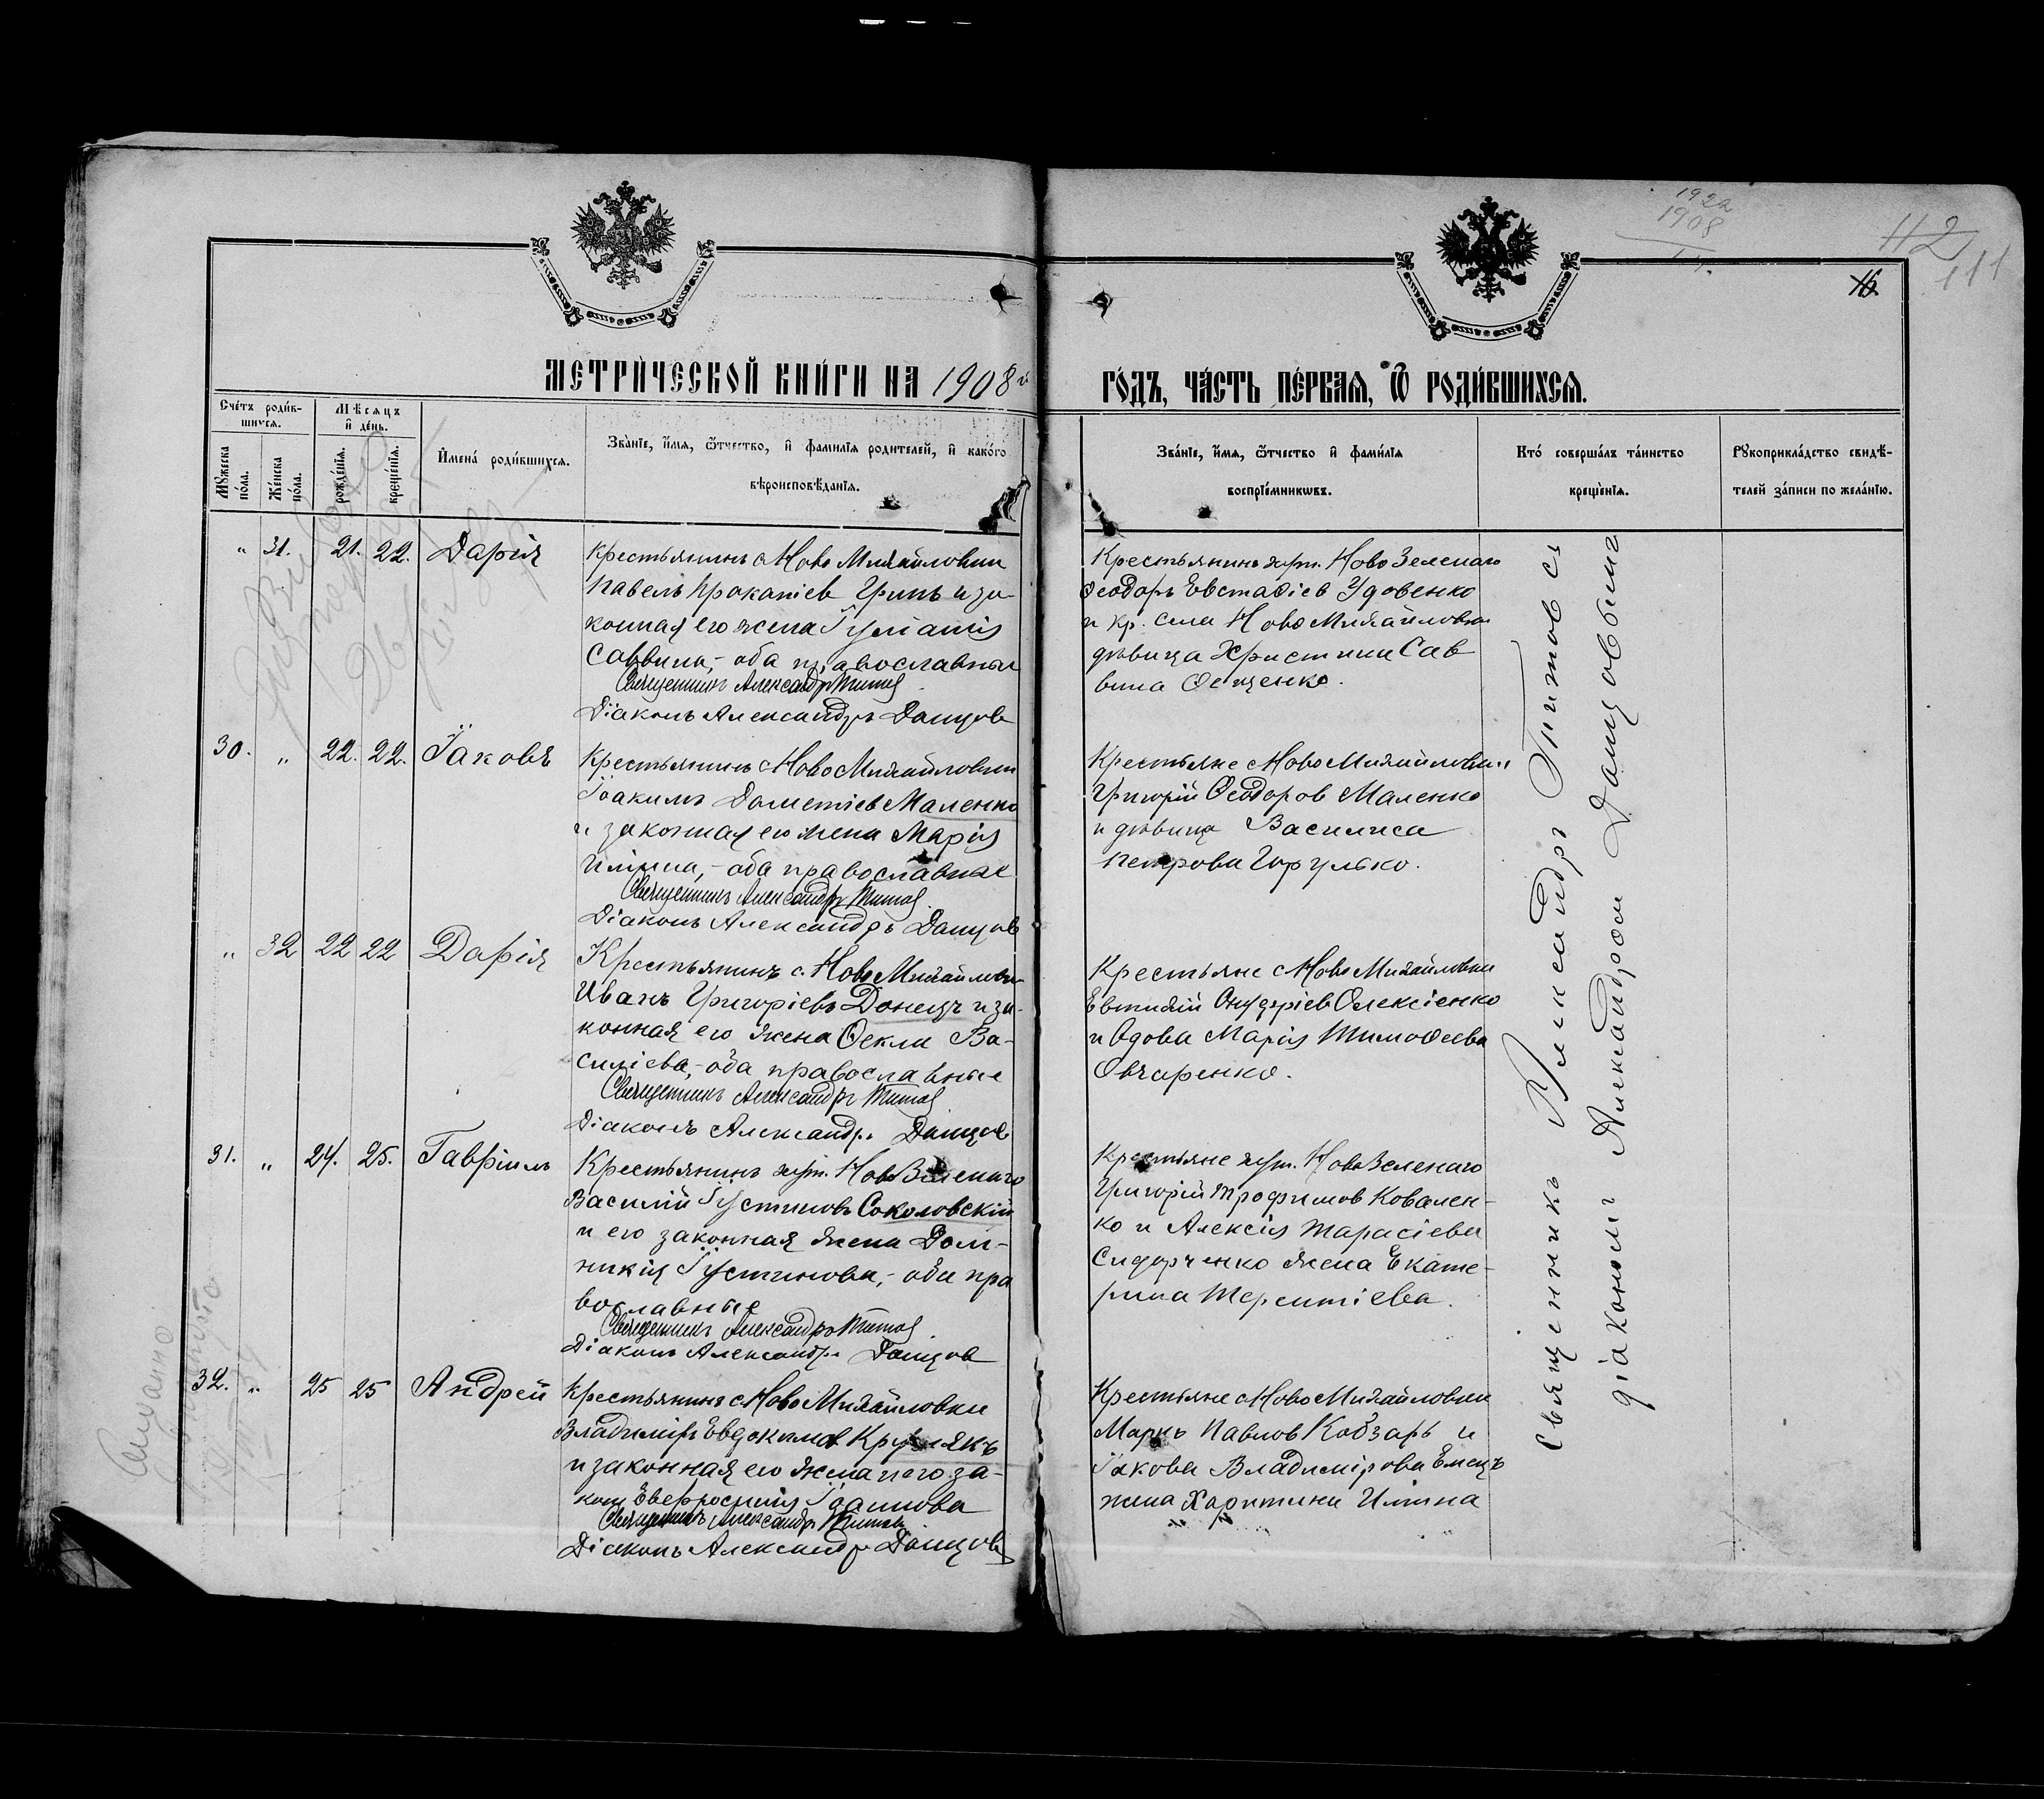 1922
1908
112
111
16.
МЕТРИЧЕСКОЙ КНИГИ НА 1908 й ГОДЪ, ЧАСТЬ ПЕРВАЯ, Ѿ РОДИВШИХСЯ.
Счетъ родив-
шихся.
Мѣсяцъ
и день.
Мужеска
пола.
Женска
пола.
рожденїя.
крещенїя.
Имена родившихся.
Званїе, имя, ѿтчество, и фамилїя родителей, и какого
вѣроисповѣданїя.
Званїе, имя, ѿтчество и фамилїя
воспрїемникѡвъ.
Кто совершалъ таинство
крещенїя.
Рукоприкладство свидѣ-
телей записи по желанїю.
" 31. 21. 22. Дарія
Крестьянинъ с Ново Михайловки
Павелъ Прокапіев Гринь и за-
конная его жена
Саввина,- оба православныи
Священникъ Александръ Титов
Діаконъ Александръ Данцов
Крестьянинъ хут. Ново Зеленаго
Ѳеодоръ Евстаѳіев Удовенко
и кр. села Ново Михайловки
дѣвица Христина Сав
вина
30. " 22. 22. Іаковъ
Крестьянинъ с Ново Михайловки
Іоакимъ Дометіев Маленко
и законная его жена Марія
Ильина,- оба православные
Священникъ Александръ Титов
Діаконъ Александръ Данцов
Крестьяне с Ново Михайловки
Григорій Ѳеодоров Маленко
и дѣвица Василиса
Петрова Горулько.
" 32 22 22 Дарія
Крестьянинъ с. Ново Михайловки
Иванъ Григоріевъ Донецъ и за-
конная его жена Ѳекла Ва-
силіева,- оба православные
Священникъ Александръ Титов
Діаконъ Александръ Данцов
Крестьяне с Ново Михайловки
Евтихій Онуфріев Олексіенко
и вдова Марія Тимоѳеева
Овчаренко.
31. " 24. 25. Гавріилъ
Крестьянинъ хут. Ново Зеленаго
Василій Іустиновъ Соколовскій
и его законная жена Дом-
никія Іустинова,- оба пра
вославные
Священникъ Александръ Титов
Діаконъ Александръ Данцов
Крестьяне хут. Ново Зеленаго
Григорій Трофимов Ковален-
ко и Алексія Тарасіева
Сидорченко жена Екате-
рина Терентіева.
32. " 25 25 Андрей
Крестьянинъ с Ново Михайловки
Владиміръ Евдокимов
и законная его жена
Евфросинія Іоаннова
Священникъ Александръ Титов
Діаконъ Александръ Данцов
Крестьяне с Ново Михайловки
Маркъ Павлов Кобзарь и
Іакова Владимірова Емецъ
жена Харитина Ильина
Священникъ Александръ Титов съ
діаконом Александром Данцовым